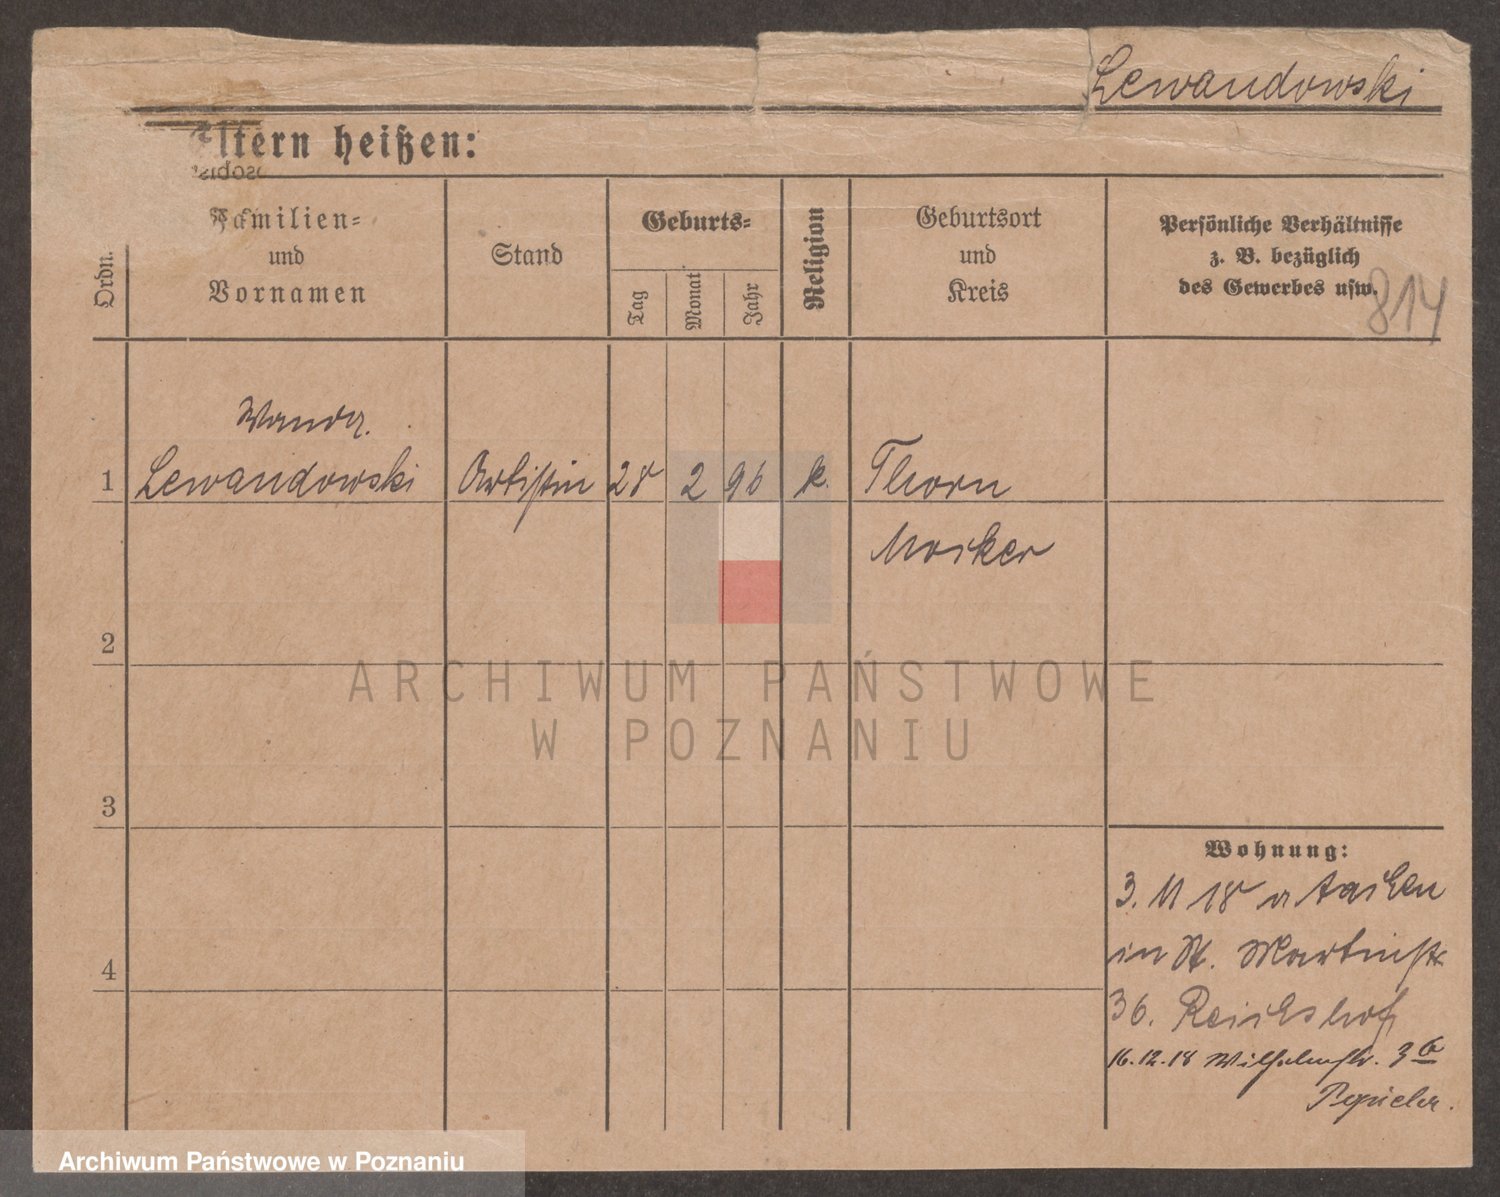 Lewandowski
Eltern heißen:
Ordn.
Familien-
und
Vornamen
Stand
Geburts-
Tag
Monat
Jahr
Religion
Geburtsort
und
Kreis
Persönliche Verhältnisse
z. B. bezüglich
des Gewerbes usw.
814
Wanda.
1 Lewandowski Artistin 28 2 96 k. Thorn
Mocker
2
3
4
Wohnung:
3. 11 18 a Aachen
in St. Martinstr
36. Reichshof
16.12.18 Wilhelmstr. 36
ARCHIWUM PAŃSTWOWE
W POZNANIU
Archiwum Państwowe w Poznaniu